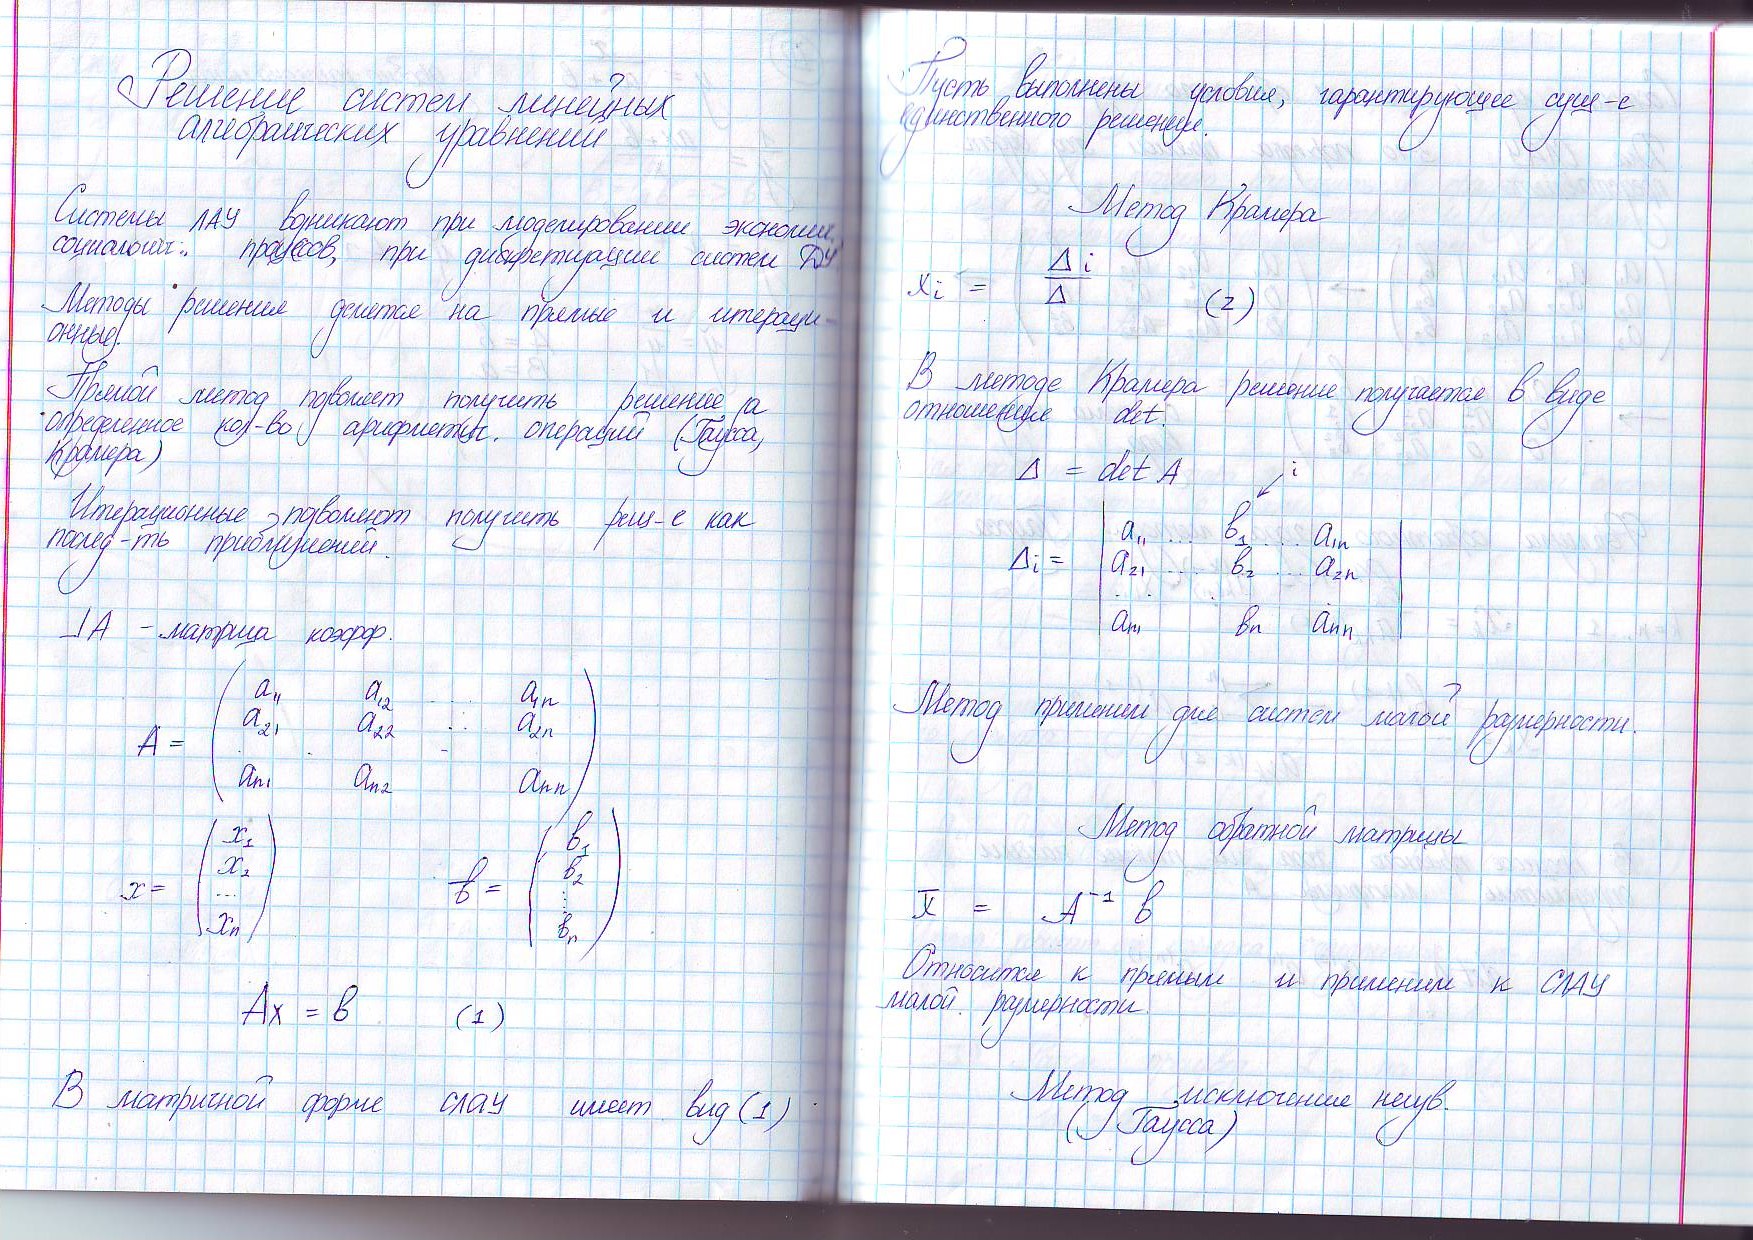 Решение систем линейных
алгебраических уравнений
Системы ЛАУ возникают при моделировании экономич.
социологич. процессов, при дискретизации систем ДУ
Методы решения делятся на прямые и итераци-
онные.
Прямой метод позволяет получить решение за
определенное кол-во арифметич. операций (Гаусса,
Крамера)
Итерационные позволяют получить реш-е как
послед-ть приближений.
⅃A - матрица коэфф.
a₁₁ a₁₂ ... a₁n
a₂₁ a₂₂ ... a₂n
A =
. . -
an₁ an₂ ann
x₁ b₁
x₂ b₂
x = ... b = ...
xn bn
Ax = b (1)
В матричной форме СЛАУ имеет вид (1)
Пусть выполнены условия, гарантирующее сущ-е
единственного решения.
Метод Крамера
xi = Δi / Δ (2)
В методе Крамера решение получается в виде
отношения det.
Δ = det A i
a₁₁ ... b₁ ... a₁n
Δi = a₂₁ ... b₂ ... a₂n
. . .
an₁ bn ann
Метод применим для систем малой размерности.
Метод обратной матрицы
x̄ = A⁻¹ b
Относится к прямым и применим к СЛАУ
малой размерности.
Метод исключения неизв.
(Гаусса)